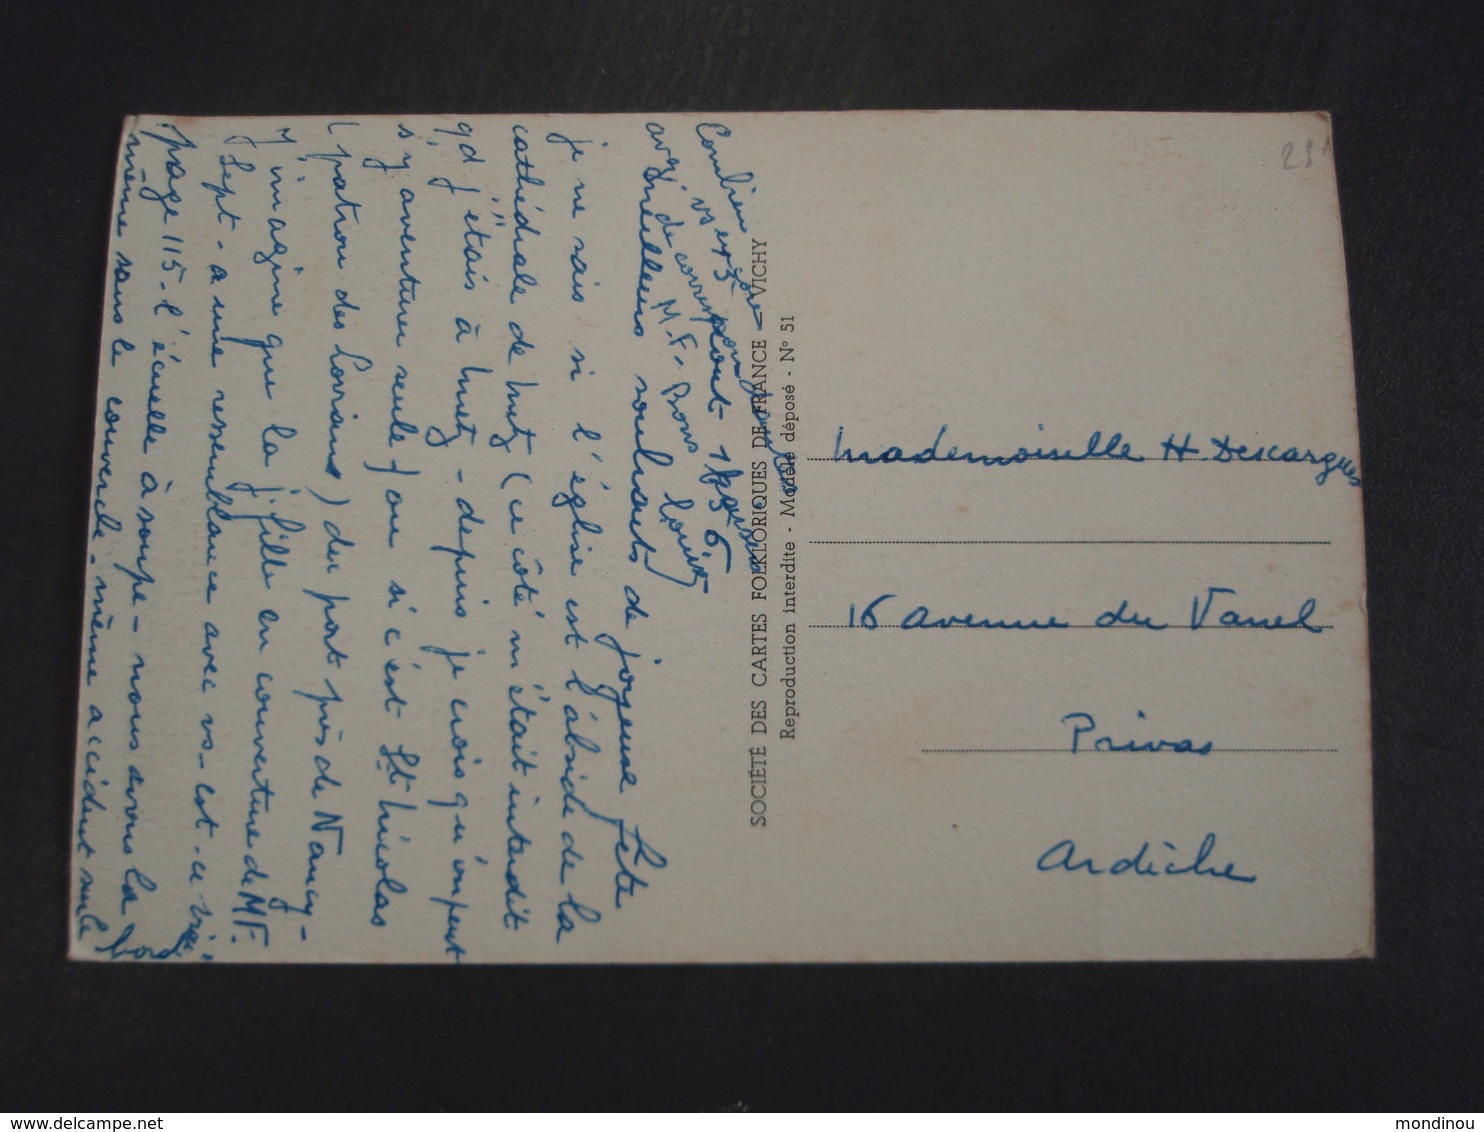 Combien
vs ex
15 Août 1956
avec mes meilleurs souhaits de joyeuse fête
M.F. Bons
je ne sais si l'église est l'abside de la
cathédrale de Metz (ce côté m'était interdit
qd j'étais à Metz - depuis je crois qu'on peut
s'y aventurer seule) ou si c'est St Nicolas
(patron des Lorrains) du port près de Nancy -
J'imagine que la fille en couverture de MF.
Sept - a une ressemblance avec vs - est-ce vrai
page 115 - l'écuelle à soupe - nous avons la
même sans le couvercle - même accident sur le
SOCIÉTÉ DES CARTES FOLKLORIQUES DE FRANCE - VICHY
Reproduction interdite - Modèle déposé - N° 51
Mademoiselle H Descargues
16 avenue du Vanel
Privas
Ardèche
mondinou